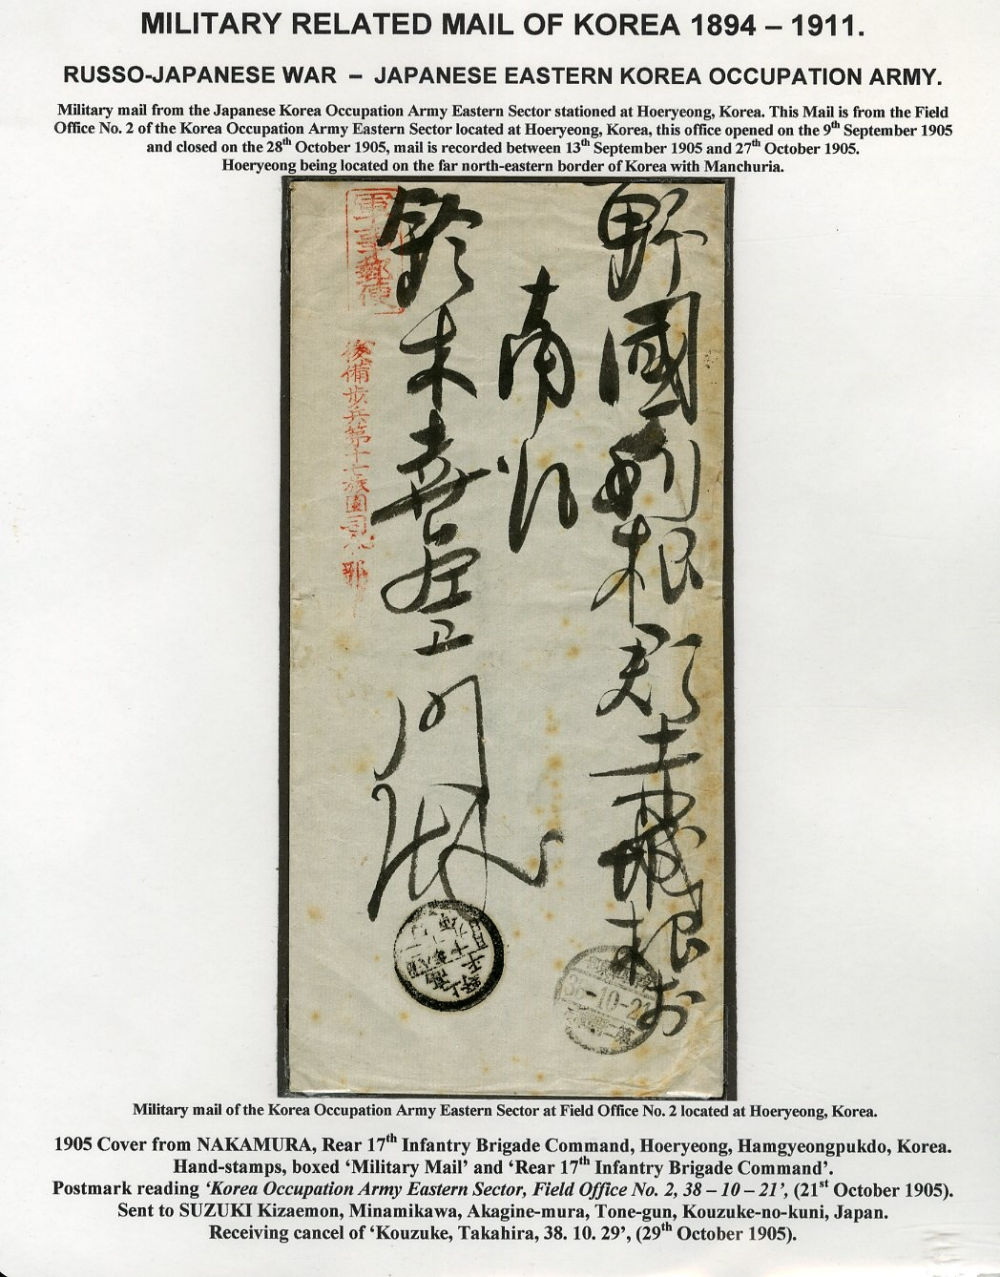 MILITARY RELATED MAIL OF KOREA 1894 – 1911.
RUSSO-JAPANESE WAR – JAPANESE EASTERN KOREA OCCUPATION ARMY.
Military mail from the Japanese Korea Occupation Army Eastern Sector stationed at Hoeryeong, Korea. This Mail is from the Field
Office No. 2 of the Korea Occupation Army Eastern Sector located at Hoeryeong, Korea, this office opened on the 9th September 1905
and closed on the 28th October 1905, mail is recorded between 13th September 1905 and 27th October 1905.
Hoeryeong being located on the far north-eastern border of Korea with Manchuria.
野國利根郡
南
鈴木喜
軍事郵便
後備歩兵第十七旅團司令部
38-10-21
Military mail of the Korea Occupation Army Eastern Sector at Field Office No. 2 located at Hoeryeong, Korea.
1905 Cover from NAKAMURA, Rear 17th Infantry Brigade Command, Hoeryeong, Hamgyeongpukdo, Korea.
Hand-stamps, boxed ‘Military Mail’ and ‘Rear 17th Infantry Brigade Command’.
Postmark reading ‘Korea Occupation Army Eastern Sector, Field Office No. 2, 38 – 10 – 21’, (21st October 1905).
Sent to SUZUKI Kizaemon, Minamikawa, Akagine-mura, Tone-gun, Kouzuke-no-kuni, Japan.
Receiving cancel of ‘Kouzuke, Takahira, 38. 10. 29’, (29th October 1905).